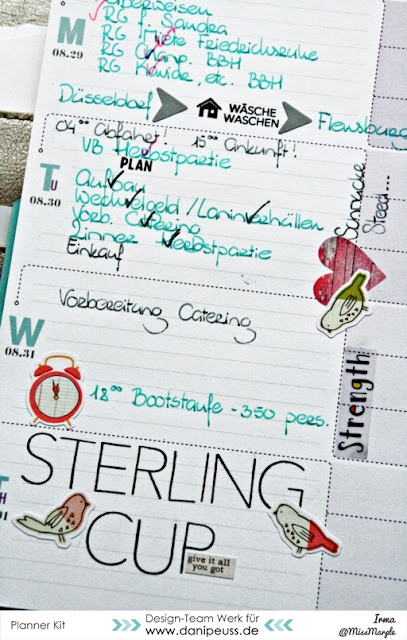 Überweisen
RG f. Sandra
RG Miete Friedrichsruhe
M
08.29
RG Champ. BBH
RG Kleider, etc. BBH
Düsseldorf
WÄSCHE
WASCHEN
Flensburg
04⁰⁰ Abfahrt! 15⁰⁰ Ankunft!
VB Herbstpartie
PLAN
TU
08.30
Aufbau
Wechselgeld /
Vorb. Catering
Dinner Herbstpartie
Einkauf
Steed...
Vorbereitung Catering
W
08.31
18⁰⁰ Bootstaufe - 350 pers.
Strength
STERLING
TH
CUP
give it all
you got
Planner Kit
Design-Team Werk für
www.danipeuss.de
Irma
@MissMarple